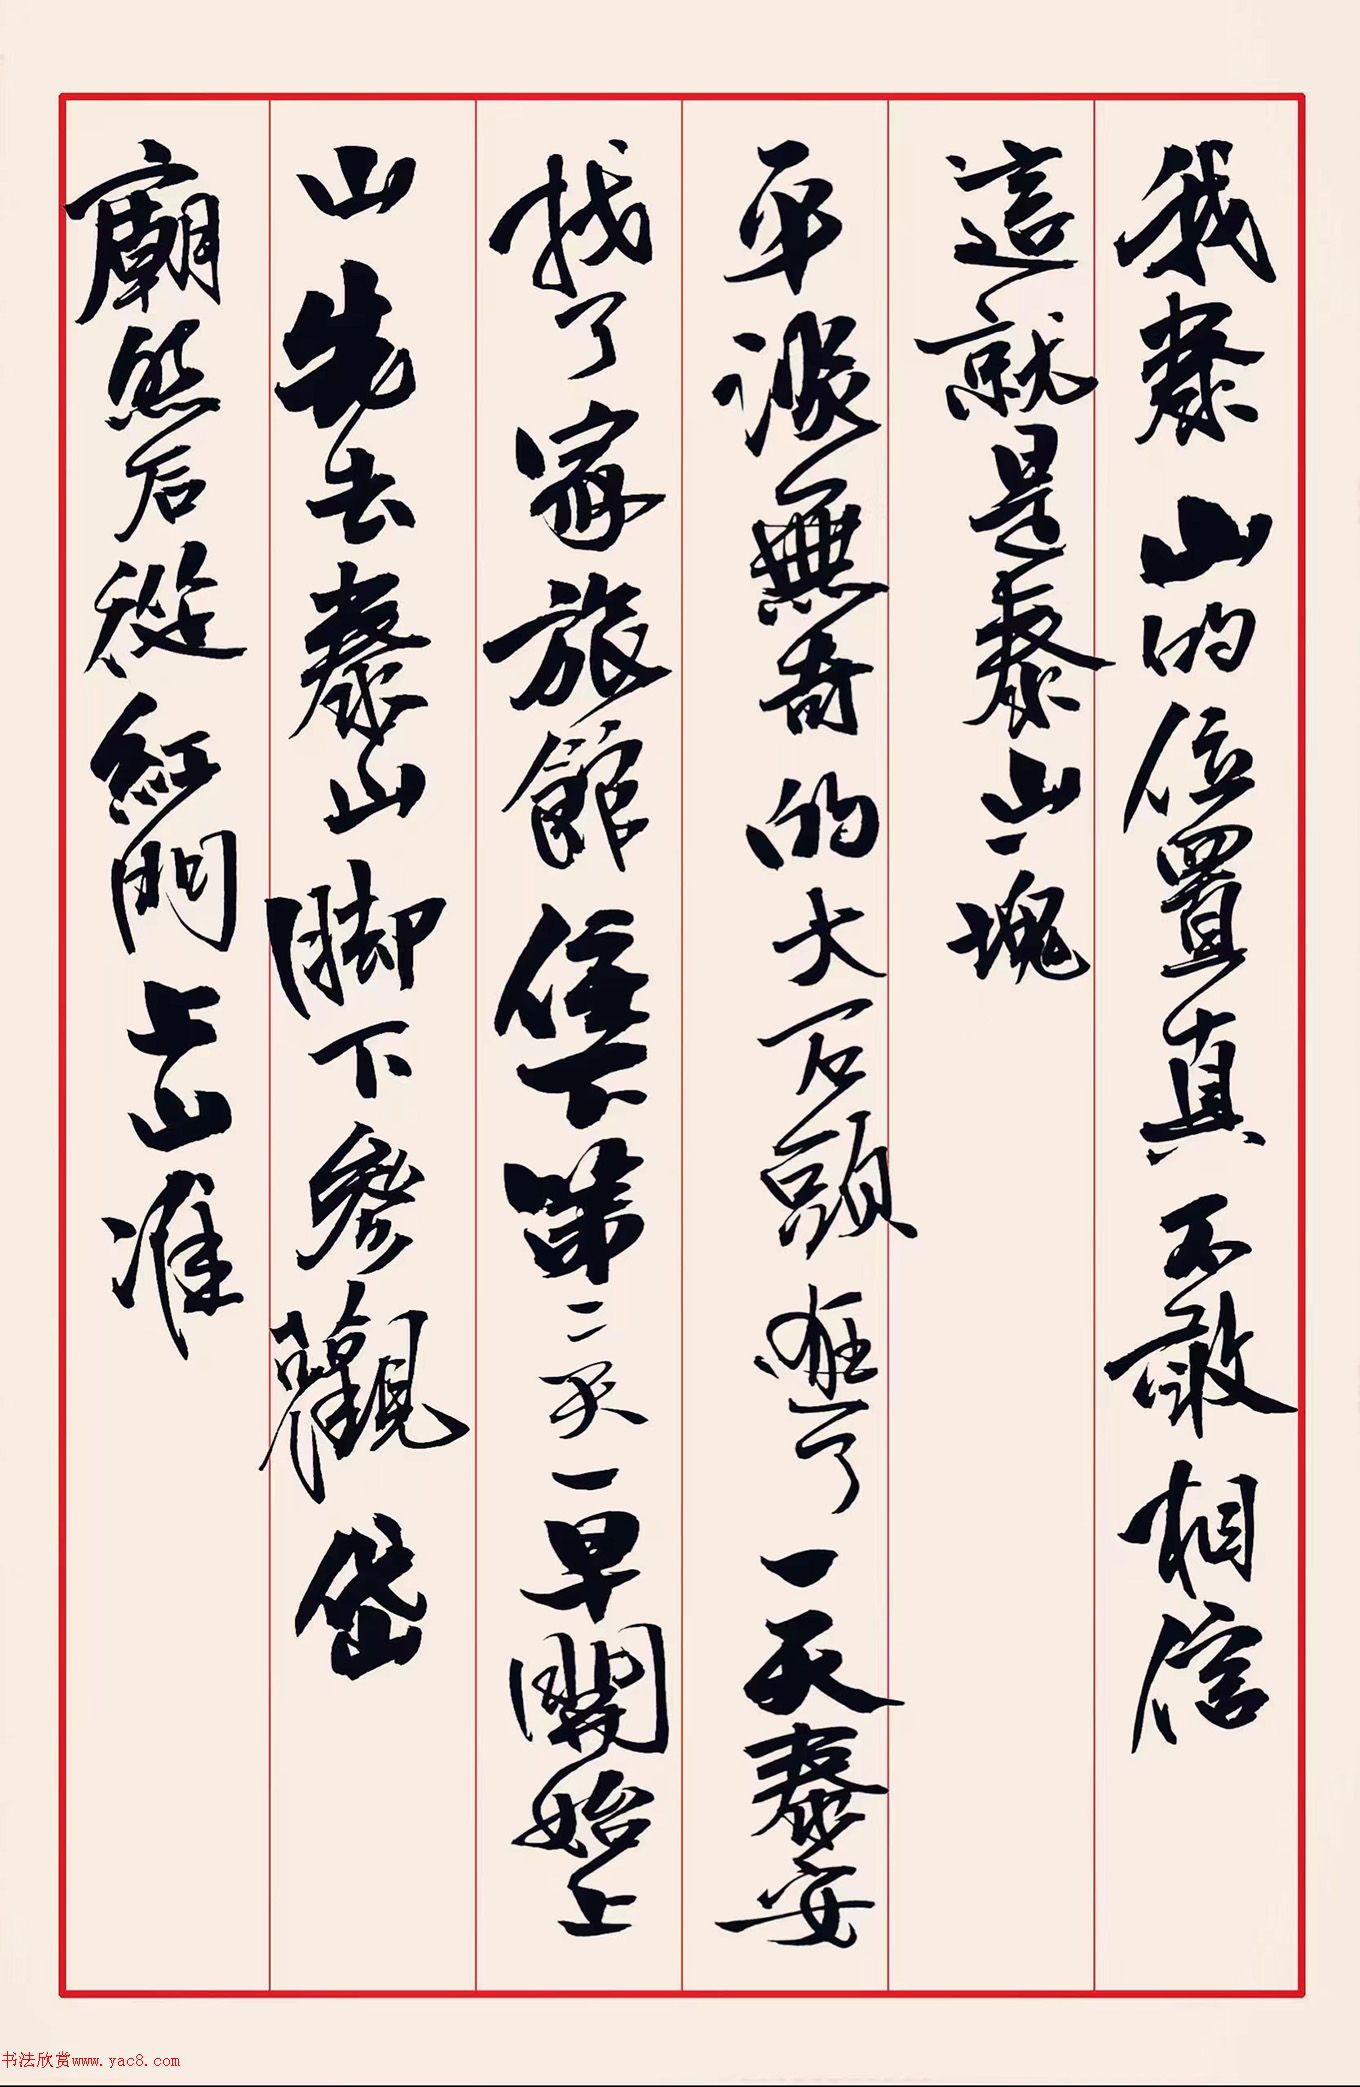 我泰山的位置真不敢相信
這就是泰山一塊
平淡無奇的大石頭逛了一天泰安
找了家旅館住下第二天一早開始上
山先去泰山脚下參觀岱
廟然后從紅門上山准
书法欣赏www.yac8.com